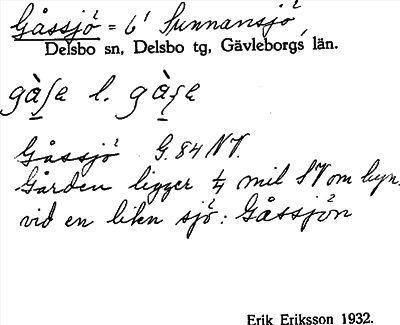 Gåssjö = 6' Sunnansjö
Delsbo sn, Delsbo tg, Gävleborgs län.
gàʃe l. gàʂe
Gåssjö G. 84 NV.
Gården ligger ¼ mil SV om byn.
vid en liten sjö: Gåssjön
Erik Eriksson 1932.